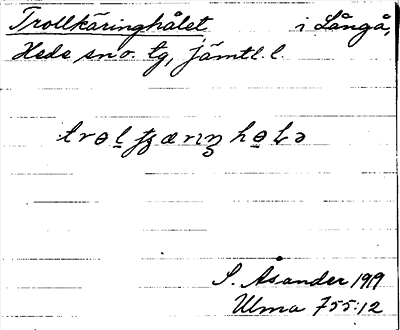 Trollkäringhålet i Långå,
Hede sn o. tg, Jämtl. l.
S. Åsander 1919
Ulma 755:12